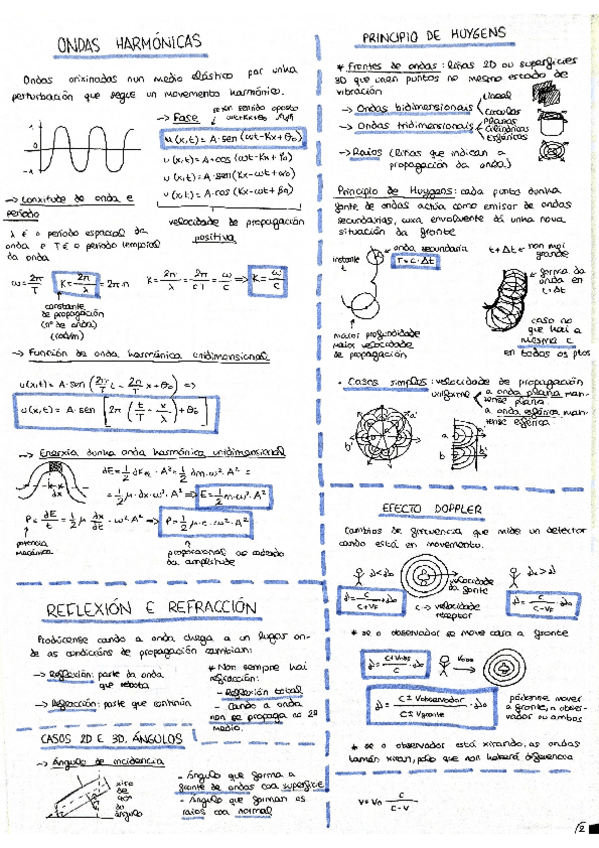 ONDAS HARMÓNICAS
Ondas orixinadas nun medio elástico por unha
perturbación que segue un movemento harmónico.
→ Fase
u(x,t) = A·sen(ωt-Kx+θ₀)
u(x,t) = A·cos(ωt-Kx+γ₀)
u(x,t) = A·sen(Kx-ωt+α₀)
u(x,t) = A·cos(Kx-ωt+β₀)
velocidade de propagación
positiva
→ Lonxitude de onda e
período
λ é o período espacial da
onda e T é o período temporal
da onda
ω = 2π/T
K = 2π/λ = 2π·n
K = 2π/λ = 2π/cT = ω/c ⇒ K = ω/c
constante
de propagación
(nº de onda)
(rad/m)
→ Función de onda harmónica unidimensional
u(x,t) = A·sen(2π/T t - 2π/λ x + θ₀) ⇒
u(x,t) = A·sen[2π(t/T - x/λ) + θ₀]
→ Enerxía dunha onda harmónica unidimensional
dx
= 1/2 μ·dx·ω²·A² ⇒ E = 1/2 m·ω²·A²
P = dE/t = 1/2 μ dx/dt·ω²·A² ⇒ P = 1/2 μ·c·ω²·A²
potencia
mecánica
proporcional ao cadrado
da amplitude
REFLEXIÓN E REFRACCIÓN
Prodúcense cando a onda chega a un lugar on-
de as condicións de propagación cambian:
→ Reflexión: parte da onda
que rebota
→ Refracción: parte que continúa
* Non sempre hai
refracción:
- Reflexión total
- Cando a onda
non se propaga no 2º
medio.
CASOS 2D E 3D. ÁNGULOS
→ Ángulo de incidencia
xiro
de
90º
do
ángulo
- Ángulo que forma a
fronte de ondas coa superficie
- Ángulo que forman os
raios coa normal
PRINCIPIO DE HUYGENS
* Frontes de ondas: liñas 2D ou superficies
3D que unen puntos no mesmo estado de
vibración
→ Ondas bidimensionais
Lineal
Circulos
→ Ondas tridimensionais
Planas
Cilíndricas
Esféricas
→ Raios (liñas que indican a
propagación da onda)
Principio de Huygens: cada punto dunha
fronte de ondas actúa como emisor de ondas
secundarias, cuxa envolvente dá unha nova
situación da fronte
instante
t
onda secundaria
r = c·Δt
t+Δt
non moi
grande
forma da
onda en
t+Δt
maior profundidade
maior velocidade
de propagación
caso no
que hai a
mesma c
en todos os ptos
• Casos simples: velocidade de propagación
uniforme
a onda plana man-
tense plana
a onda esférica man-
tense esférica.
a
b
a'
b'
EFECTO DOPPLER
Cambios de frecuencia que mide un detector
cando está en movemento.
velocidade
da fonte
c → velocidade
receptor
* se o observador se move cara a fronte
pódense mover
a fronte, o obser-
vador ou ambos
* se o observador está xirando, as ondas
tamén xiran, polo que non haberá diferencia
c/(c-v)
2